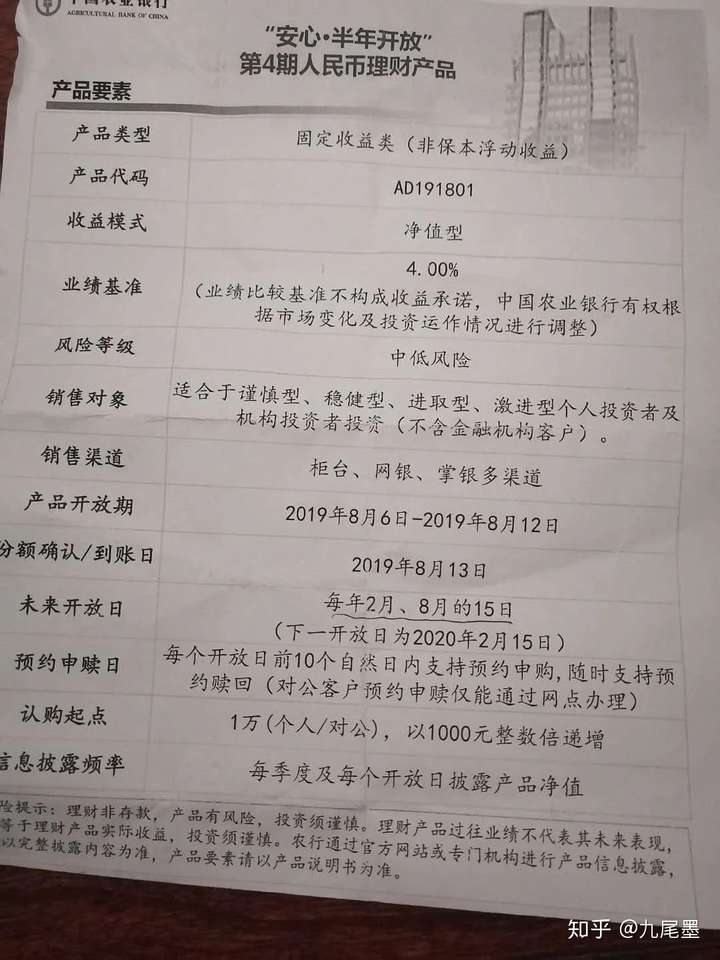 中国农业银行
AGRICULTURAL BANK OF CHINA
“安心·半年开放”
第4期人民币理财产品
产品要素
产品类型 固定收益类（非保本浮动收益）
产品代码 AD191801
收益模式 净值型
业绩基准 4.00%
（业绩比较基准不构成收益承诺，中国农业银行有权根
据市场变化及投资运作情况进行调整）
风险等级 中低风险
销售对象 适合于谨慎型、稳健型、进取型、激进型个人投资者及
机构投资者投资（不含金融机构客户）。
销售渠道 柜台、网银、掌银多渠道
产品开放期 2019年8月6日-2019年8月12日
份额确认/到账日 2019年8月13日
未来开放日 每年2月、8月的15日
（下一开放日为2020年2月15日）
预约申赎日 每个开放日前10个自然日内支持预约申购,随时支持预
约赎回（对公客户预约申赎仅能通过网点办理）
认购起点 1万(个人/对公)，以1000元整数倍递增
信息披露频率 每季度及每个开放日披露产品净值
险提示：理财非存款，产品有风险，投资须谨慎。理财产品过往业绩不代表其未来表现，
等于理财产品实际收益，投资须谨慎。农行通过官方网站或专门机构进行产品信息披露，
以完整披露内容为准，产品要素请以产品说明书为准。
知乎 @九尾墨